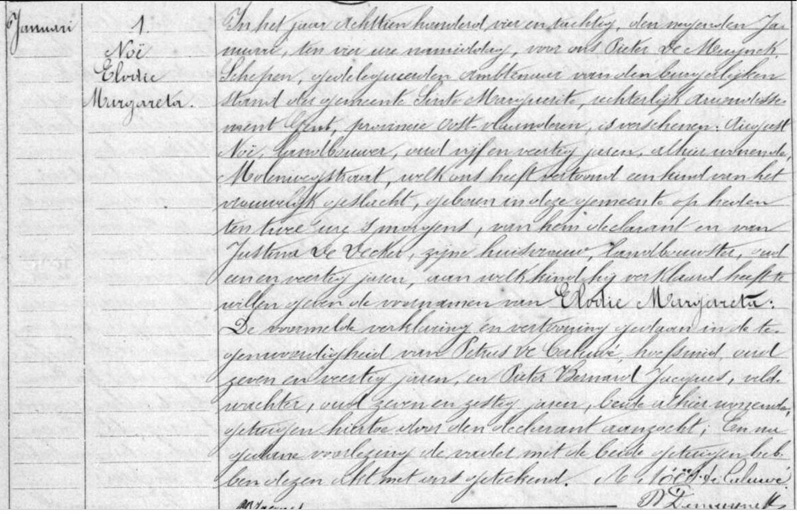 Januari
1.
Noë
Elodie
Margareta.
In het jaar achttien honderd vier en tachtig, den negenden Ja-
nuari, ten vier ure namiddag, voor ons Pieter De Muynck
Schepen, gedelegueerden ambtenaar van den burgerlijken
stand der gemeente Sinte Marguerite, rechterlijk arrondisse-
ment Gent, provincie Oost-vlaanderen, is verschenen: August
Noë, landbouwer, oud vijf en veertig jaren, alhier wonende,
Molenwegstraat, welk ons heeft vertoond een kind van het
vrouwelijk geslacht, geboren in deze gemeente op heden
ten twee ure 's morgens, van hem declarant en van
Justina De Decker, zijne huisvrouw, landbouwster, oud
een en veertig jaren, aan welk kind hij verklaard heeft te
willen geven de voornamen van Elodie Margareta.
De voormelde verklaring en vertooning gedaan in de te-
genwoordigheid van Petrus De Caluwé, hoefsmid, oud
zeven en veertig jaren, en Pieter Bernard Jacques, veld-
wachter, oud zeven en zestig jaren, beide alhier wonende,
getuigen hiertoe door den declarant aanzocht; En na
gedane voorlezing de vader met de beide getuigen heb-
ben dezen akt met ons geteekend. A Noë P. de Caluwé